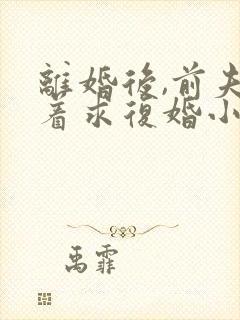 離婚後,前夫
着求復婚小
禹霏